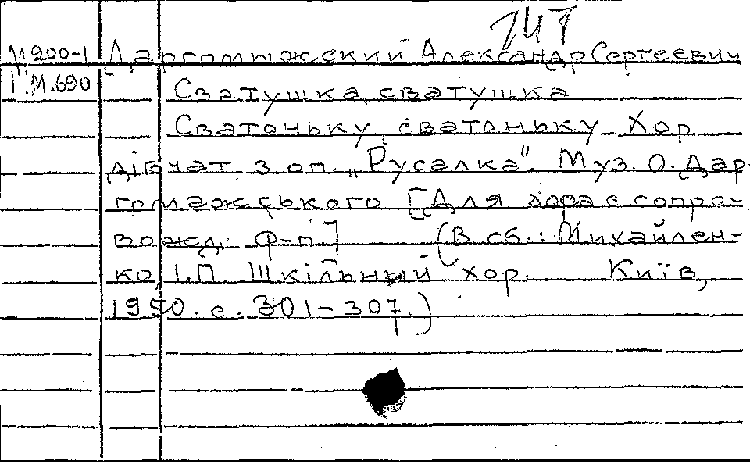 747
М 200-1 Даргомыжский Александр Сергеевич
М.690 Сватушка, сватушка
Сватоньку, сватоньку. Хор
дівчат з оп. „Русалка". Муз. О. Дар-
гомжського [Для хора с сопро-
вожд. ф-п] (В сб.: Михайлен-
ко, І.П. Шкільный хор. Київ,
1950. с. 301-307.)